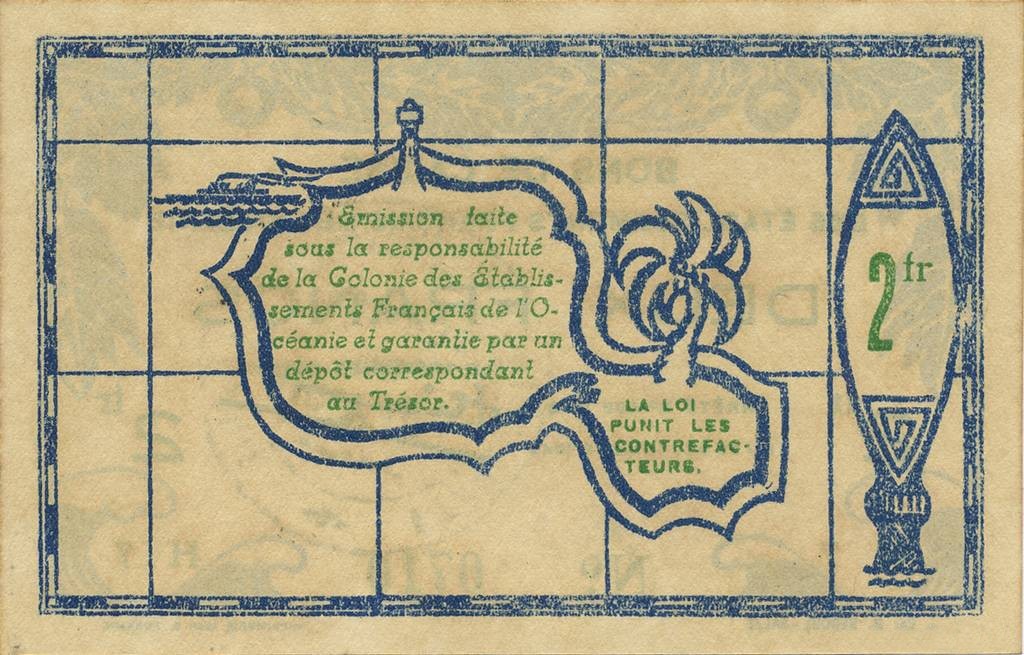 Emission faite
sous la responsabilité
de la Colonie des Établis-
sements Français de l'O-
céanie et garantie par un
dépôt correspondant
au Trésor.
LA LOI
PUNIT LES
CONTREFAC-
TEURS.
2 fr